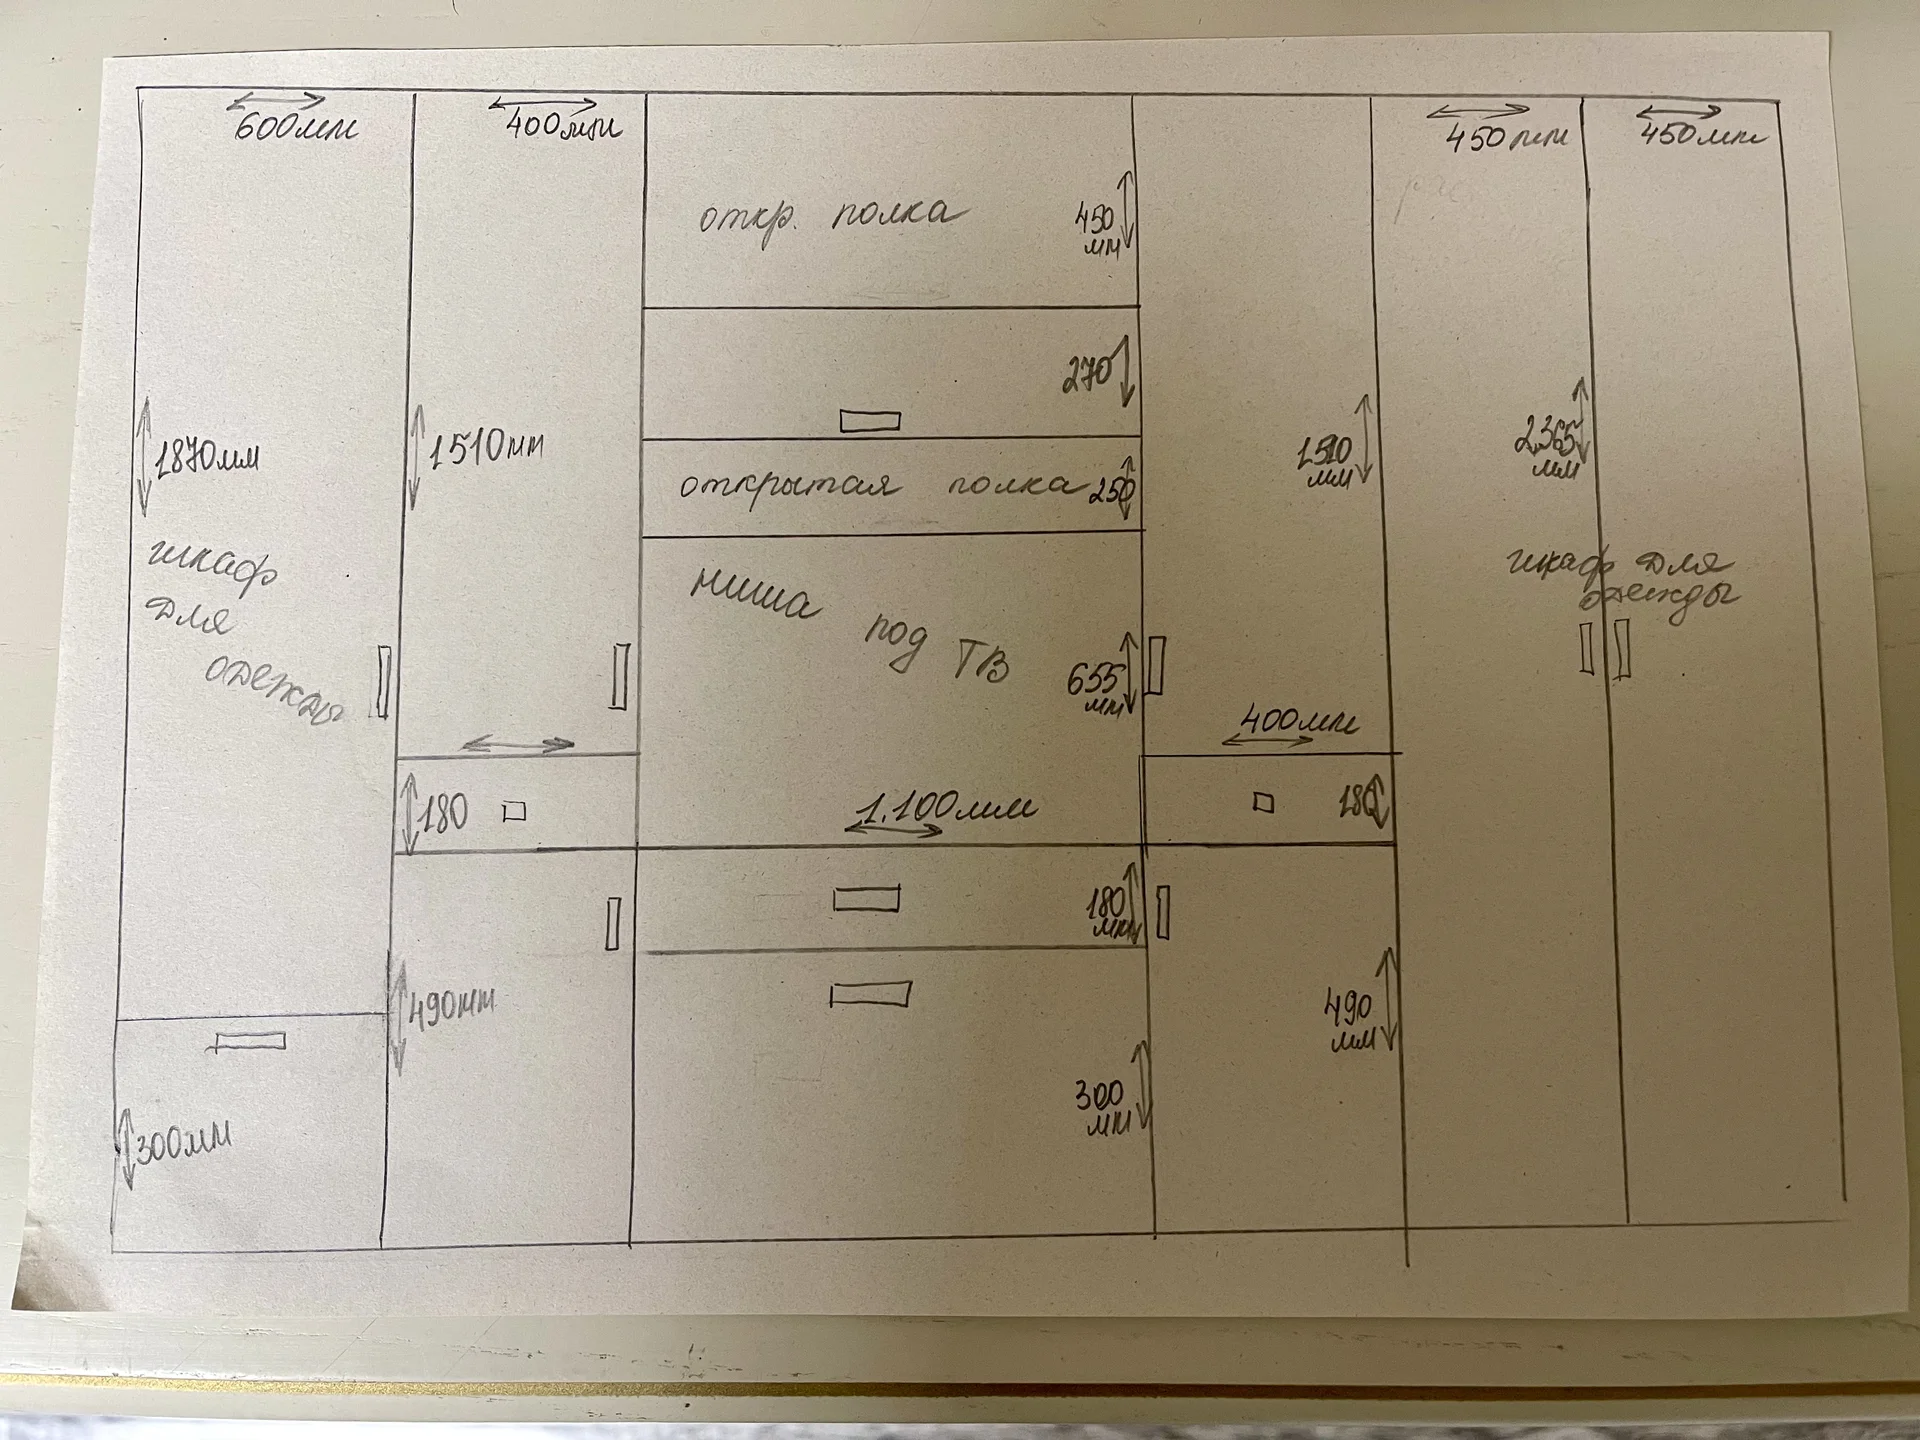 600мм
400мм
450мм
450мм
откр. полка
450
мм
270
1870мм
1510мм
открытая полка
250
1510
мм
2.365
мм
шкаф
для
одежды
ниша под ТВ
655
мм
шкаф для
одежды
400мм
180
1.100мм
180
180
мм
490мм
490
мм
300мм
300
мм